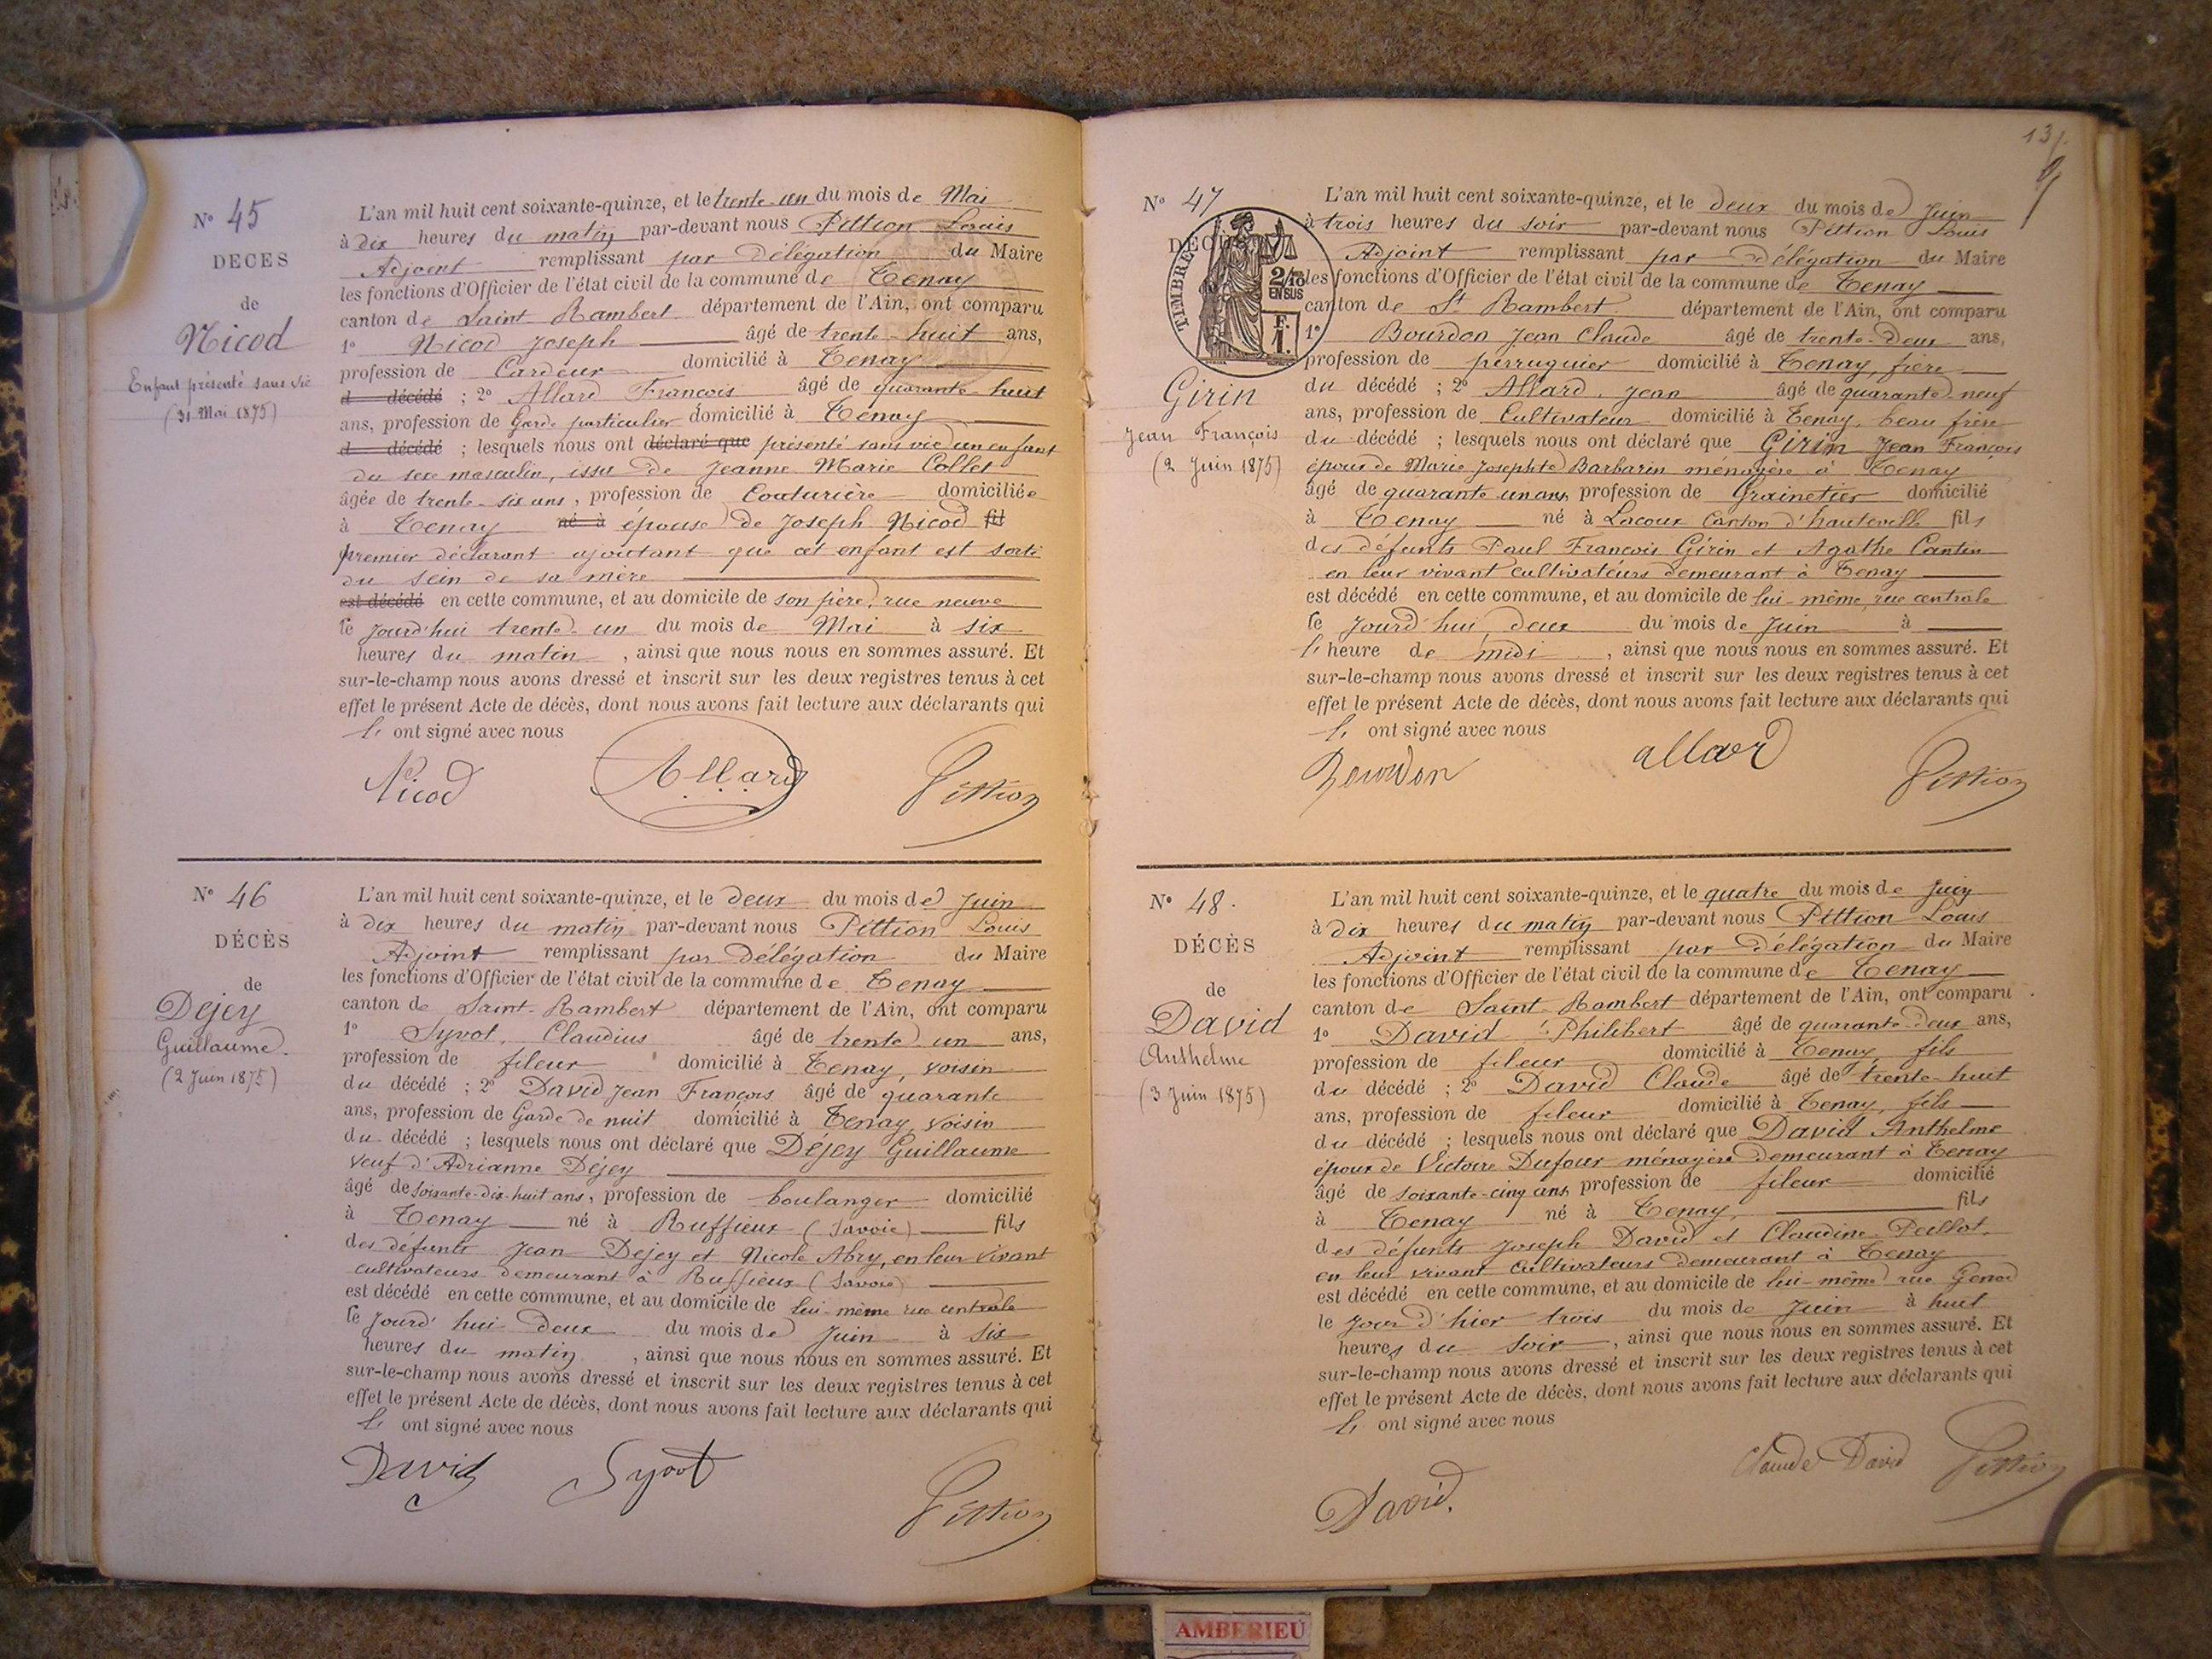 N° 45
DECES
de
Nicod
Enfant présenté sans vie
(31 Mai 1875)
L'an mil huit cent soixante-quinze, et le trente-un du mois de Mai
à dix heures du matin par-devant nous Pittion Louis
Adjoint remplissant par délégation du Maire
les fonctions d'Officier de l'état civil de la commune de Tenay
canton de Saint-Rambert département de l'Ain, ont comparu
1° Nicod Joseph âgé de trente-huit ans,
profession de Cardeur domicilié à Tenay
d décédé ; 2° Allard François âgé de quarante-huit
ans, profession de Garde particulier domicilié à Tenay
d décédé ; lesquels nous ont déclaré que présenté sans vie un enfant
du sexe masculin, issu de Jeanne Marie Collet
âgée de trente-six ans, profession de Couturière domiciliée
à Tenay né à épouse de Joseph Nicod fil
premier déclarant ajoutant que cet enfant est sorti
du sein de sa mère
est décédé en cette commune, et au domicile de son père, rue neuve
le jourd'hui trente-un du mois de Mai à six
heures du matin, ainsi que nous nous en sommes assuré. Et
sur-le-champ nous avons dressé et inscrit sur les deux registres tenus à cet
effet le présent Acte de décès, dont nous avons fait lecture aux déclarants qui
ont signé avec nous
Nicod Allard Pittion
N° 46
DÉCÈS
de
Dejey
Guillaume.
(2 Juin 1875)
L'an mil huit cent soixante-quinze, et le deux du mois de Juin
à dix heures du matin par-devant nous Pittion Louis
Adjoint remplissant par délégation du Maire
les fonctions d'Officier de l'état civil de la commune de Tenay
canton de Saint-Rambert département de l'Ain, ont comparu
1° Syvot, Claudius âgé de trente-un ans,
profession de fileur domicilié à Tenay, voisin
du décédé ; 2° David Jean François âgé de quarante
ans, profession de Garde de nuit domicilié à Tenay, voisin
du décédé ; lesquels nous ont déclaré que Dejey Guillaume
veuf d'Adrianne Dejey
âgé de soixante-dix-huit ans, profession de boulanger domicilié
à Tenay né à Ruffieux (Savoie) fils
des défunts Jean Dejey et Nicole Abry, en leur vivant
cultivateurs demeurant à Ruffieux (Savoie)
est décédé en cette commune, et au domicile de lui-même rue centrale
le jourd'hui deux du mois de Juin à six
heures du matin, ainsi que nous nous en sommes assuré. Et
sur-le-champ nous avons dressé et inscrit sur les deux registres tenus à cet
effet le présent Acte de décès, dont nous avons fait lecture aux déclarants qui
ont signé avec nous
David Syvot Pittion
137.
N° 47
DÉCÈ
TIMBRE
2/10
EN SUS
F.
1.
Girin
Jean François
(2 Juin 1875)
L'an mil huit cent soixante-quinze, et le deux du mois de Juin
à trois heures du soir par-devant nous Pittion Louis
Adjoint remplissant par délégation du Maire
les fonctions d'Officier de l'état civil de la commune de Tenay
canton de St Rambert département de l'Ain, ont comparu
1° Bourdon Jean Claude âgé de trente-deux ans,
profession de perruquier domicilié à Tenay, frère
du décédé ; 2° Allard, Jean âgé de quarante-neuf
ans, profession de Cultivateur domicilié à Tenay, beau frère
du décédé ; lesquels nous ont déclaré que Girin Jean François
époux de Marie Josephte Barbarin ménagère à Tenay
âgé de quarante un ans, profession de Grainetier domicilié
à Tenay né à Lacoux Canton d'hauteville fils
des défunts Paul François Girin et Agathe Cantin
en leur vivant cultivateurs demeurant à Tenay
est décédé en cette commune, et au domicile de lui-même, rue centrale
le jourd'hui deux du mois de Juin à
l'heure de midi, ainsi que nous nous en sommes assuré. Et
sur-le-champ nous avons dressé et inscrit sur les deux registres tenus à cet
effet le présent Acte de décès, dont nous avons fait lecture aux déclarants qui
ont signé avec nous
Bourdon allard Pittion
N° 48.
DÉCÈS
de
David
Anthelme
(3 Juin 1875)
L'an mil huit cent soixante-quinze, et le quatre du mois de Juin
à dix heures du matin par-devant nous Pittion Louis
Adjoint remplissant par délégation du Maire
les fonctions d'Officier de l'état civil de la commune de Tenay
canton de Saint-Rambert département de l'Ain, ont comparu
1° David Philibert âgé de quarante-deux ans,
profession de fileur domicilié à Tenay, fils
du décédé ; 2° David Claude âgé de trente-huit
ans, profession de fileur domicilié à Tenay, fils
du décédé ; lesquels nous ont déclaré que David Anthelme
époux de Victoire Dufour ménagère demeurant à Tenay
âgé de soixante-cinq ans, profession de fileur domicilié
à Tenay né à Tenay, fils
des défunts Joseph David et Claudine Peillot,
en leur vivant Cultivateurs demeurant à Tenay
est décédé en cette commune, et au domicile de lui-même rue Genod
le jour d'hier trois du mois de Juin à huit
heures du soir, ainsi que nous nous en sommes assuré. Et
sur-le-champ nous avons dressé et inscrit sur les deux registres tenus à cet
effet le présent Acte de décès, dont nous avons fait lecture aux déclarants qui
ont signé avec nous
David. Claude David Pittion
AMBERIEU